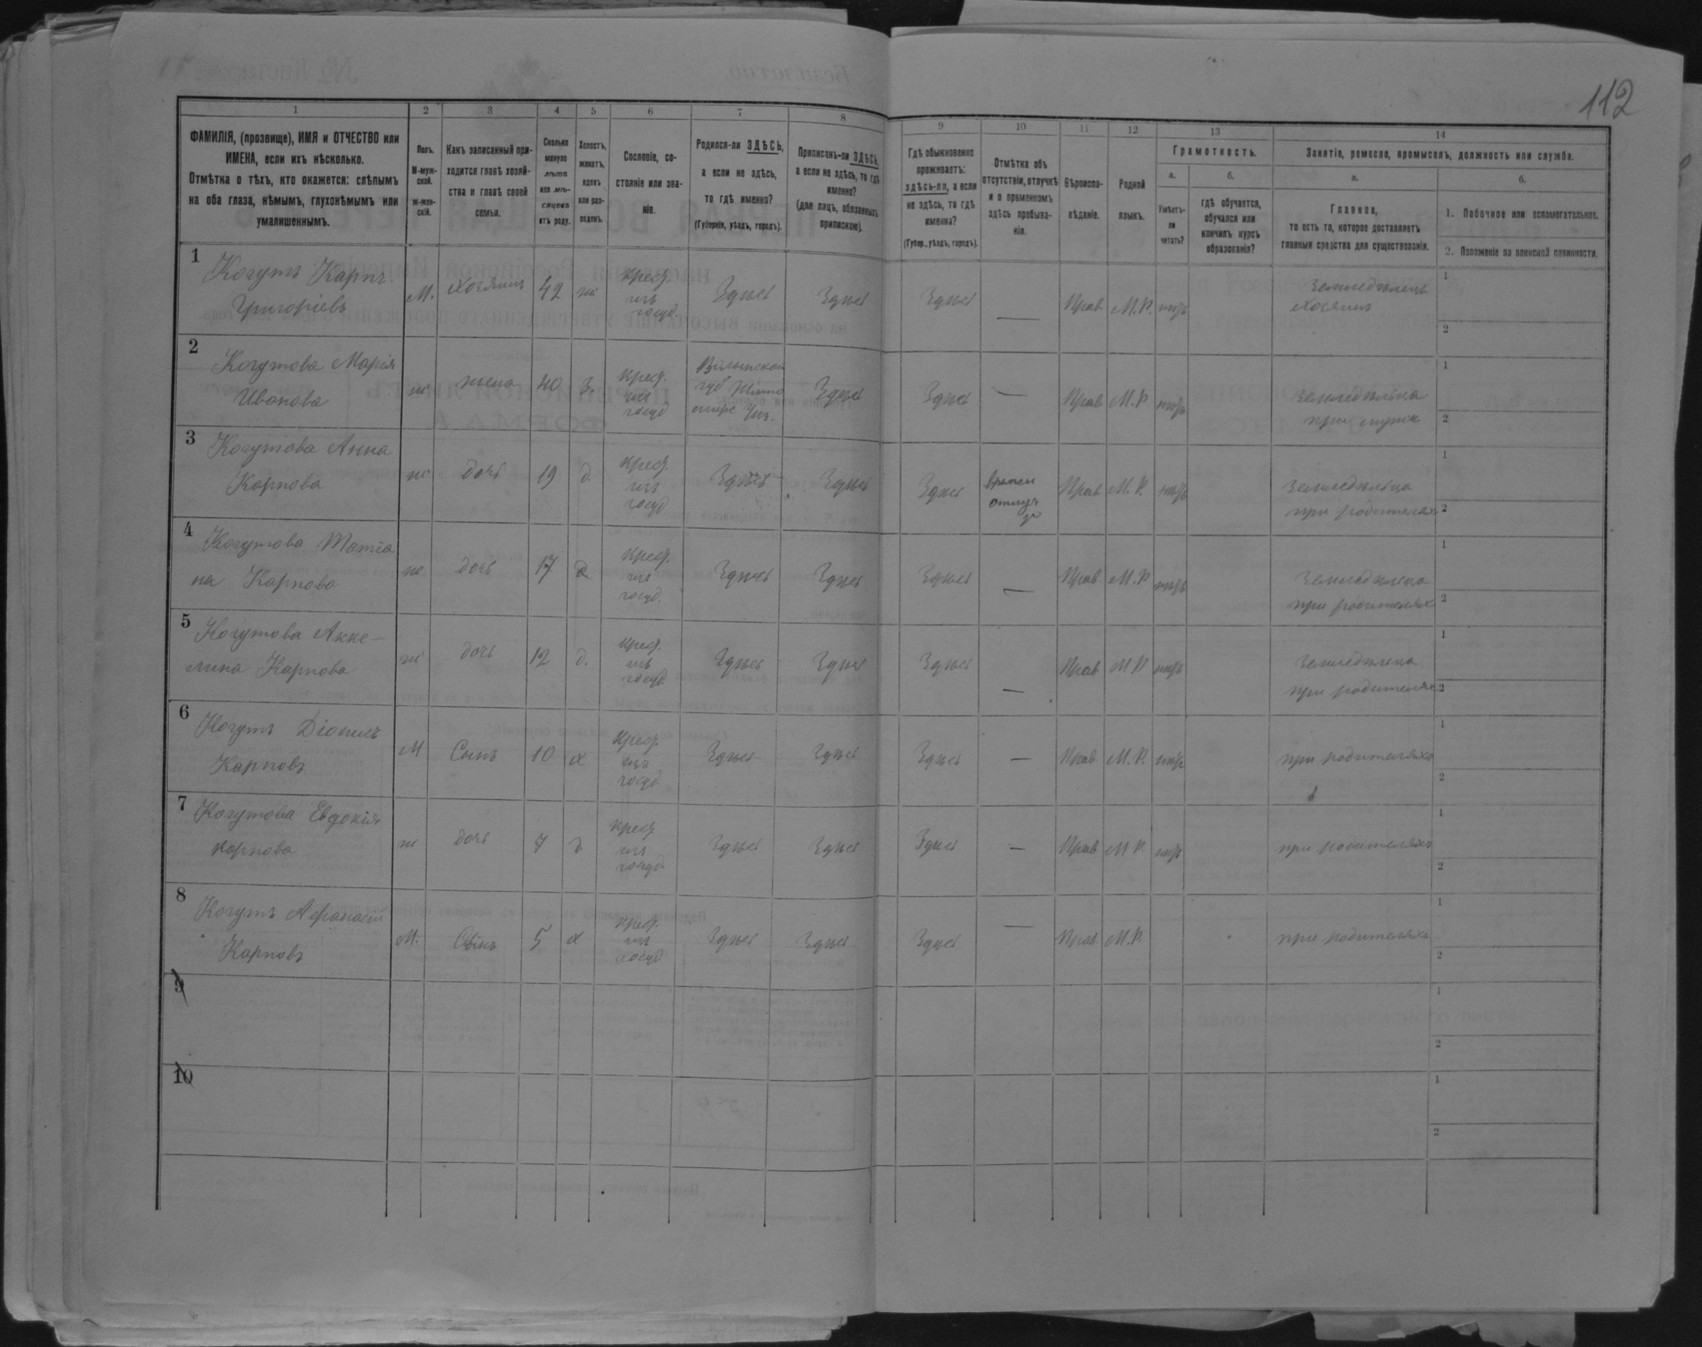 112
1 2 3 4 5 6 7 8 9 10 11 12 13 14
ФАМИЛІЯ, (прозвище), ИМЯ и ОТЧЕСТВО или
ИМЕНА, если ихъ нѣсколько.
Отмѣтка о тѣхъ, кто окажется: слѣпымъ
на оба глаза, нѣмымъ, глухонѣмымъ или
умалишеннымъ.
Полъ.
М-муж-
ской.
ж-жен-
скій.
Какъ записанный при-
ходится главѣ хозяй-
ства и главѣ своей
семьи.
Сколько
минуло
лѣтъ
или мѣ-
сяцевъ
отъ роду.
Холостъ,
женатъ,
вдовъ
или раз-
веденъ.
Сословіе, со-
стояніе или зва-
ніе.
Родился-ли ЗДѢСЬ,
а если не здѣсь,
то гдѣ именно?
(Губернія, уѣздъ, городъ).
Приписанъ-ли ЗДѢСЬ,
а если не здѣсь, то гдѣ
именно?
(для лицъ, обязанныхъ
припискою).
Гдѣ обыкновенно
проживаетъ:
здѣсь-ли, а если
не здѣсь, то гдѣ
именно?
(Губер., уѣздъ, городъ).
Отмѣтка объ
отсутствіи, отлучкѣ
и о временномъ
здѣсь пребыва-
ніи.
Вѣроиспо-
вѣданіе.
Родной
языкъ.
Грамотность.
а.
Умѣетъ-
ли
читать?
б.
гдѣ обучается,
обучался или
кончилъ курсъ
образованія?
Занятіе, ремесло, промыселъ, должность или служба.
а.
Главное,
то есть то, которое доставляетъ
главныя средства для существованія.
б.
1. Побочное или вспомогательное.
2. Положеніе по воинской повинности.
1
Когутъ Карпъ
Григоріевъ
М. Хозяинъ 42 ж Крест.
изъ
госуд.
Здѣсь Здѣсь Здѣсь — Прав М.Р. нѣтъ
Земледѣлецъ
Хозяинъ
1
2
2
Когутова Марія
Иванова
ж жена 40 З. Крест.
изъ
госуд
Волынской
губ Жито
мире Уѣз.
Здѣсь Здѣсь — Прав М.Р нѣтъ
Земледѣльца
при мужѣ
1
2
3
Когутова Анна
Карпова
ж дочь 19 д. Крест.
изъ
госуд
Здѣсь Здѣсь Здѣсь
Прав М.Р. нѣтъ
Земледѣльца
при родителяхъ
1
2
4
Когутова Татіа
на Карпова
ж дочь 17 д Крест.
изъ
госуд.
Здѣсь Здѣсь Здѣсь — Прав М.Р нѣтъ
Земледѣлца
при родителяхъ
1
2
5
Когутова Акке-
лина Карпова
ж дочь 12 д. Крест.
изъ
госуд
Здѣсь Здѣсь Здѣсь — Прав М Р нѣтъ
Земледѣлца
при родителяхъ
1
2
6
Когутъ
Карповъ
М Сынъ 10 х Крест.
изъ
госуд
Здѣсь Здѣсь Здѣсь — Прав М.Р. нѣтъ
при родителяхъ
1
2
7
Когутова Евдокія
карпова
ж дочь 7 д Крест.
изъ
госуд
Здѣсь Здѣсь Здѣсь — Прав М Р. нѣтъ
при родителяхъ
1
2
8
Когутъ Афонасій
Карповъ
М. Сынъ 5 х Крест.
изъ
госуд
Здѣсь Здѣсь Здѣсь — Прав М.Р.
при родителяхъ
1
2
9
1
2
10
1
2